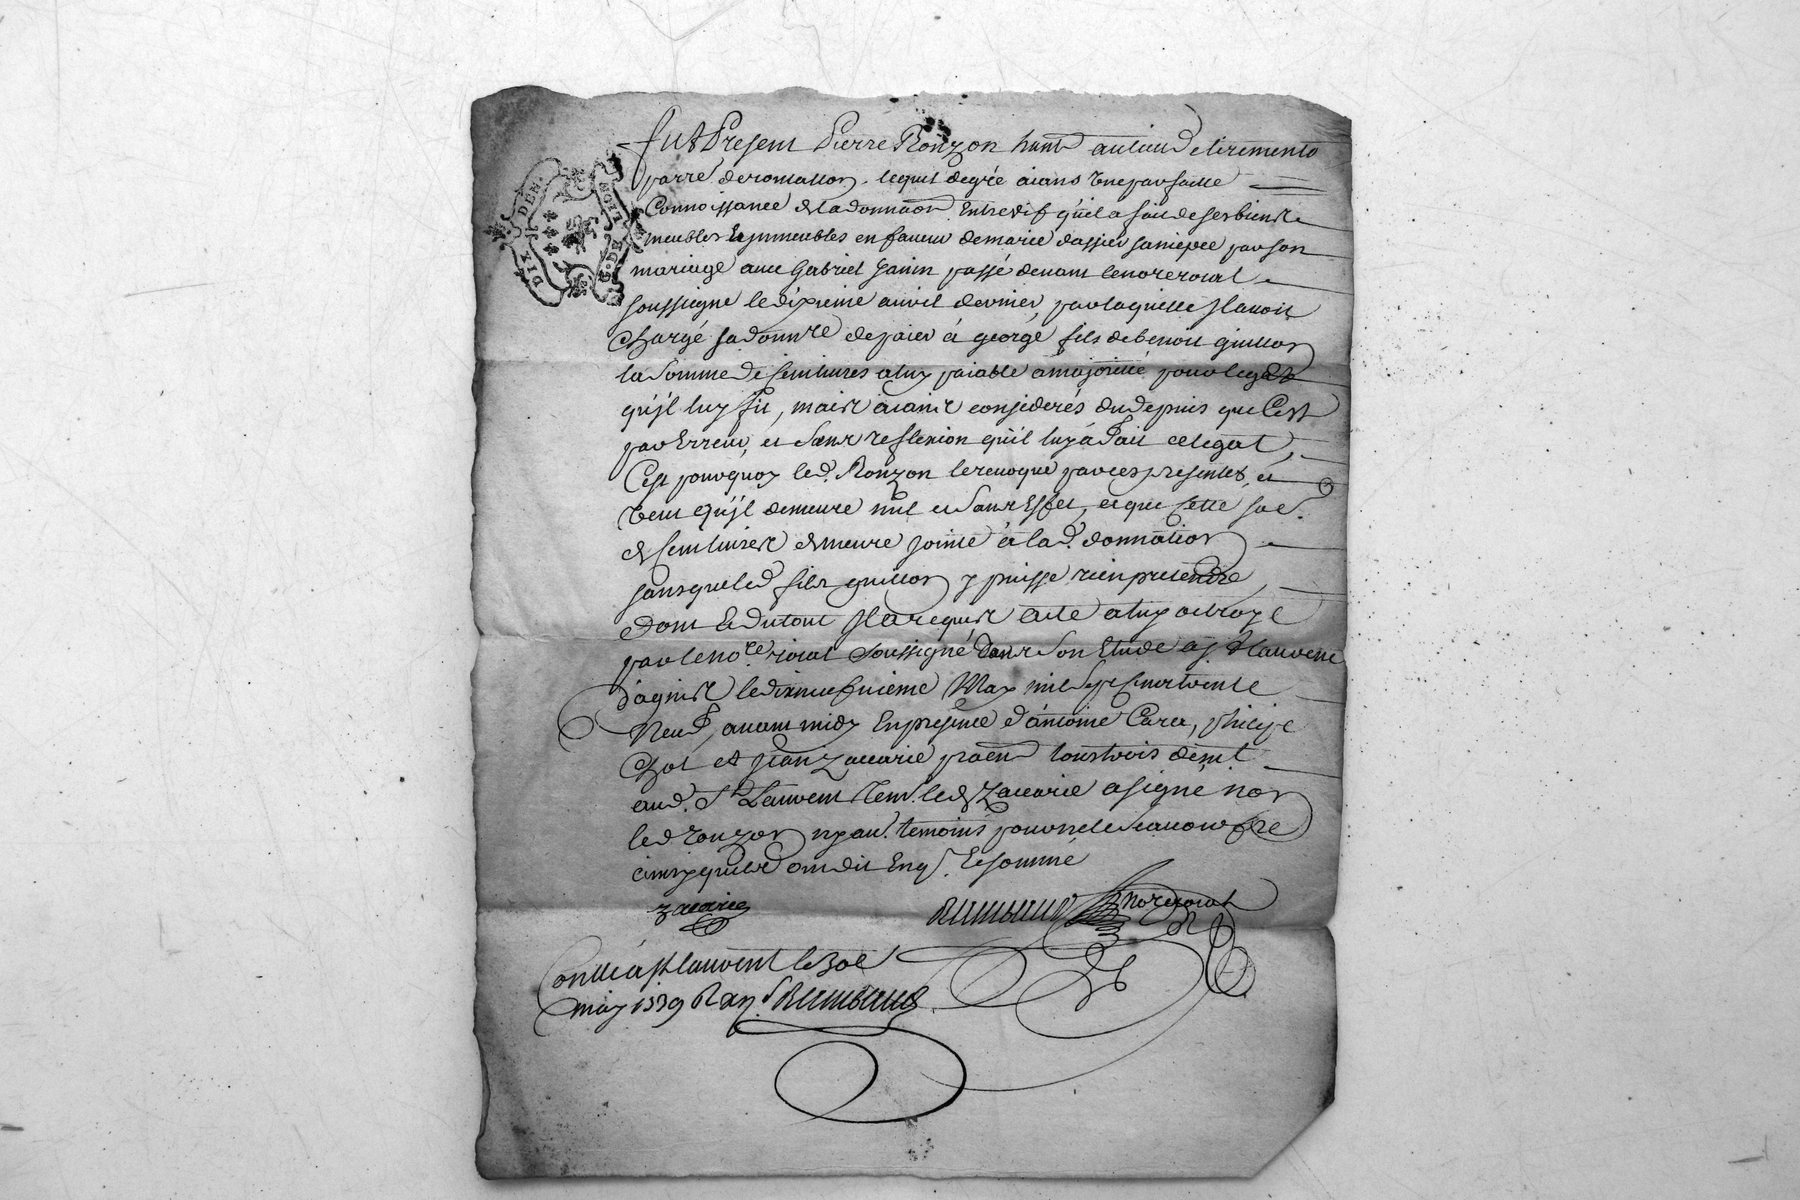 DIX DEN. G. DE LION
fut Present Pierre Ronzon hant au lieu
parre de romallon, lequel degrée aians une parfaitte
Connoissance de la donnaon Entrevif quil a fait de ses biens
meubles Et jmmeubles en faveur de marie dassier sa niepce par son
mariage avec Gabriel Janin passé devant le nore roial
soussigné le dixieme avril dernier, par laquelle Jl avoit
Chargé sa donnre de paier à george fils de benoit guillon
la somme de Cent livres a luy paiable a majorité pour le legat
qu'jl luy fit, mais aiant considerés du depuis que C'est
par Erreur, et sans reflexion qu'il luy à fait ce legat,
C'est pourquoy led. Ronzon le revoque par ces presentes, et
veut qu'jl demeure nul et sans Effet, et que cette soe.
de Cent livres demeure jointe à lad. donnation
sans que led fils guillon y puisse rien pretendre
Dont Et du tout Jl a requis acte a luy octroyé
par le nore roial soussigné dans son Etude a St Laurent
d'agnis le dixneufvieme May mil sept Cent trente
Neuf, avant midy En presence d'antoine Carra, philipe
Chol et Jean Zacarie tous trois
aud. St Laurent led Zacarie a signé non
led ronzon ny au. temoins pour ne le scavoir fre
ainsy quils ont dit Enq. Et sommé
zacarie
Rimbaud nore roial
Conllé à St laurent le
may 1739 R Rimbaud